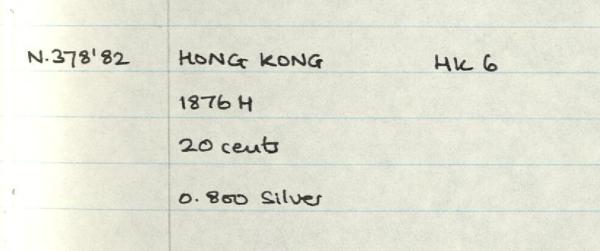 N.378'82 HONG KONG HK 6
1876 H
20 cents
0.800 Silver